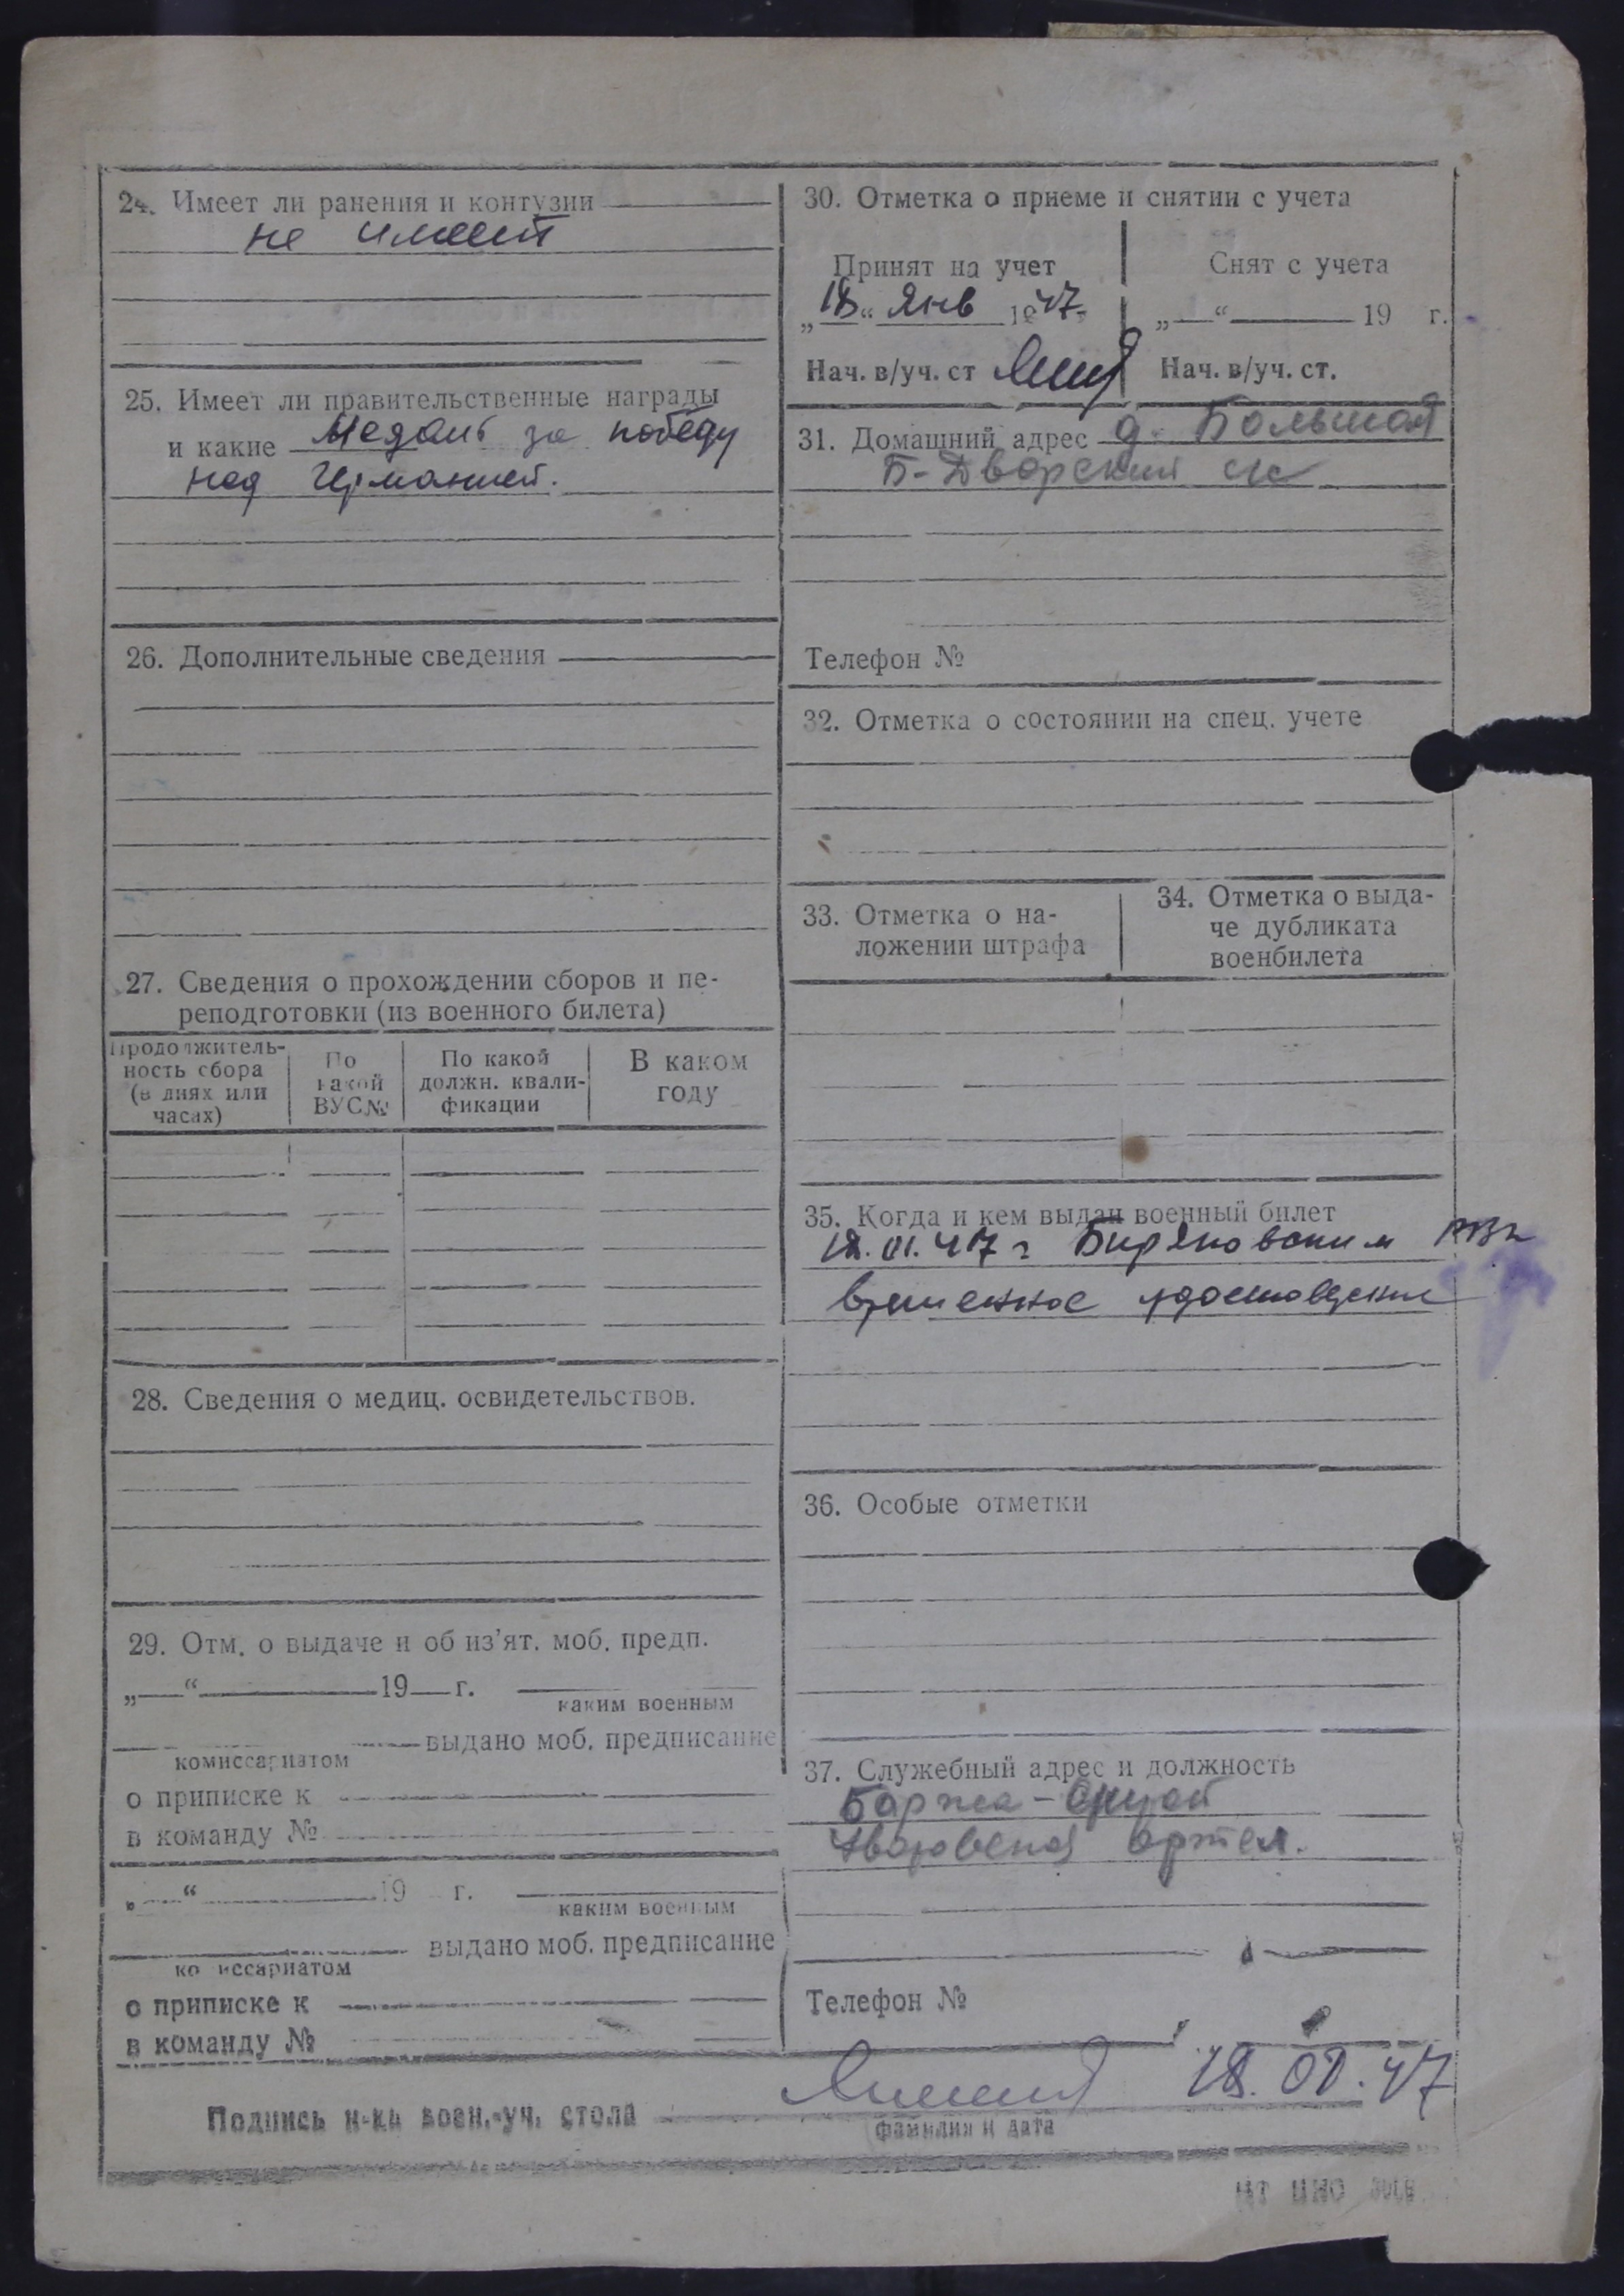 24. Имеет ли ранения и контузии
не имеет
25. Имеет ли правительственные награды
и какие Медаль за победу
над Германией.
26. Дополнительные сведения
27. Сведения о прохождении сборов и пе-
реподготовки (из военного билета)
Продолжитель-
ность сбора
(в днях или
часах)
По
какой
ВУС №
По какой
должн. квали-
фикации
В каком
году
28. Сведения о медиц. освидетельствов.
29. Отм. о выдаче и об из'ят. моб. предп.
„ “ 19 г.
каким военным
выдано моб. предписание
комиссариатом
о приписке к
в команду №
„ “ 19 г.
каким военным
выдано моб. предписание
ко иссариатом
о приписке к
в команду №
30. Отметка о приеме и снятии с учета
Принят на учет
„18“ Янв 1947
Нач. в/уч. ст
Снят с учета
„ “ 19 г.
Нач. в/уч. ст.
31. Домашний адрес д. Большой
Б-Дворский с/с
Телефон №
32. Отметка о состоянии на спец. учете
33. Отметка о на-
ложении штрафа
34. Отметка о выда-
че дубликата
военбилета
35. Когда и кем выдан военный билет
18.01.47 г Биряковским РВк
временное удостоверение
36. Особые отметки
37. Служебный адрес и должность
Баржа-
артел.
Телефон №
Подпись н-ка воен.-уч. стола 18.01.47
фамилия и дата